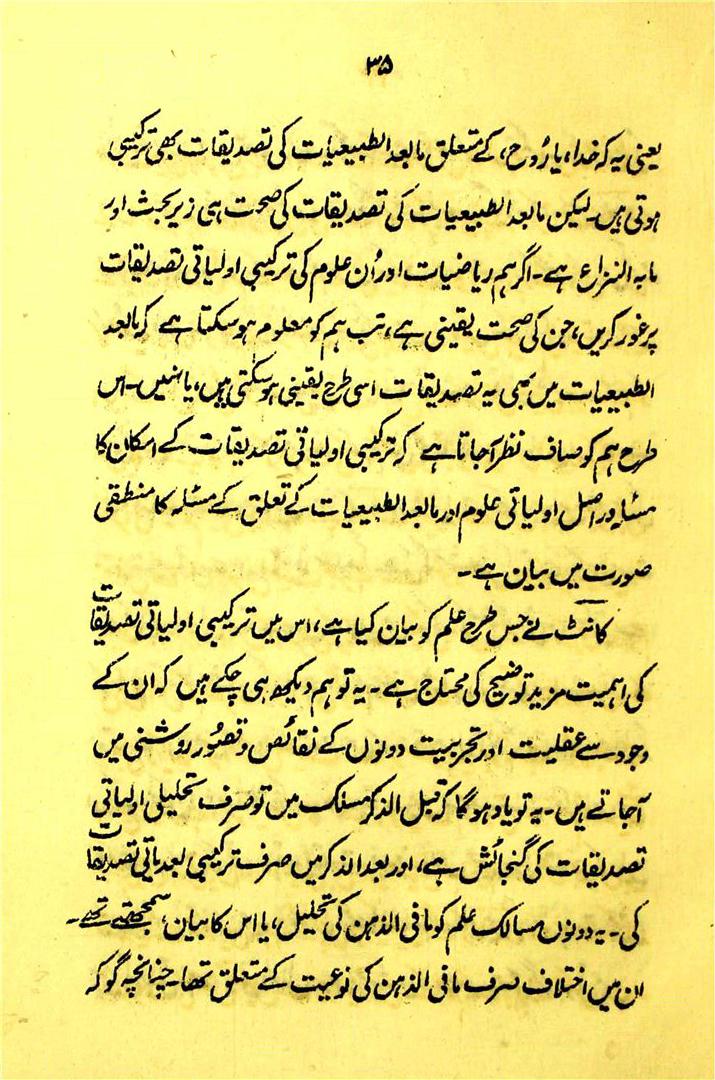 ۳۵
یعنی یہ کہ خدا، یا رُوح، کے متعلق مابعد الطبیعیات کی تصدیقات بھی ترکیبی
ہوتی ہیں۔ لیکن مابعد الطبیعیات کی تصدیقات کی صحت ہی زیر بحث اور
مابہ النزاع ہے۔ اگر ہم ریاضیات اور اُن علوم کی ترکیبی اولیاتی تصدیقات
پر غور کریں، جن کی صحت یقینی ہے، تب ہم کو معلوم ہو سکتا ہے کہ مابعد
الطبیعیات میں بھی یہ تصدیقات اسی طرح یقینی ہو سکتی ہیں، یا نہیں۔ اس
طرح ہم کو صاف نظر آجاتا ہے کہ ترکیبی اولیاتی تصدیقات کے امکان کا
مسئلہ دراصل اولیاتی علوم اور مابعد الطبیعیات کے تعلق کے مسئلہ کا منطقی
صورت میں بیان ہے۔
کانٹ نے جس طرح علم کو بیان کیا ہے، اس میں ترکیبی اولیاتی تصدیقات
کی اہمیت مزید توضیح کی محتاج ہے۔ یہ تو ہم دیکھ ہی چکے ہیں کہ ان کے
وجود سے عقلیت اور تجربیت دونوں کے نقائص و قصور روشنی میں
آجاتے ہیں۔ یہ تو یاد ہوگا کہ قبل الذکر مسلک میں تو صرف تحلیلی اولیاتی
تصدیقات کی گنجائش ہے، اور بعد الذکر میں صرف ترکیبی بعدیاتی تصدیقات
کی۔ یہ دونوں مسالک علم کو مافی الذہن کی تحلیل، یا اس کا بیان، سمجھتے تھے۔
ان میں اختلاف صرف مافی الذہن کی نوعیت کے متعلق تھا۔ چنانچہ گو کہ